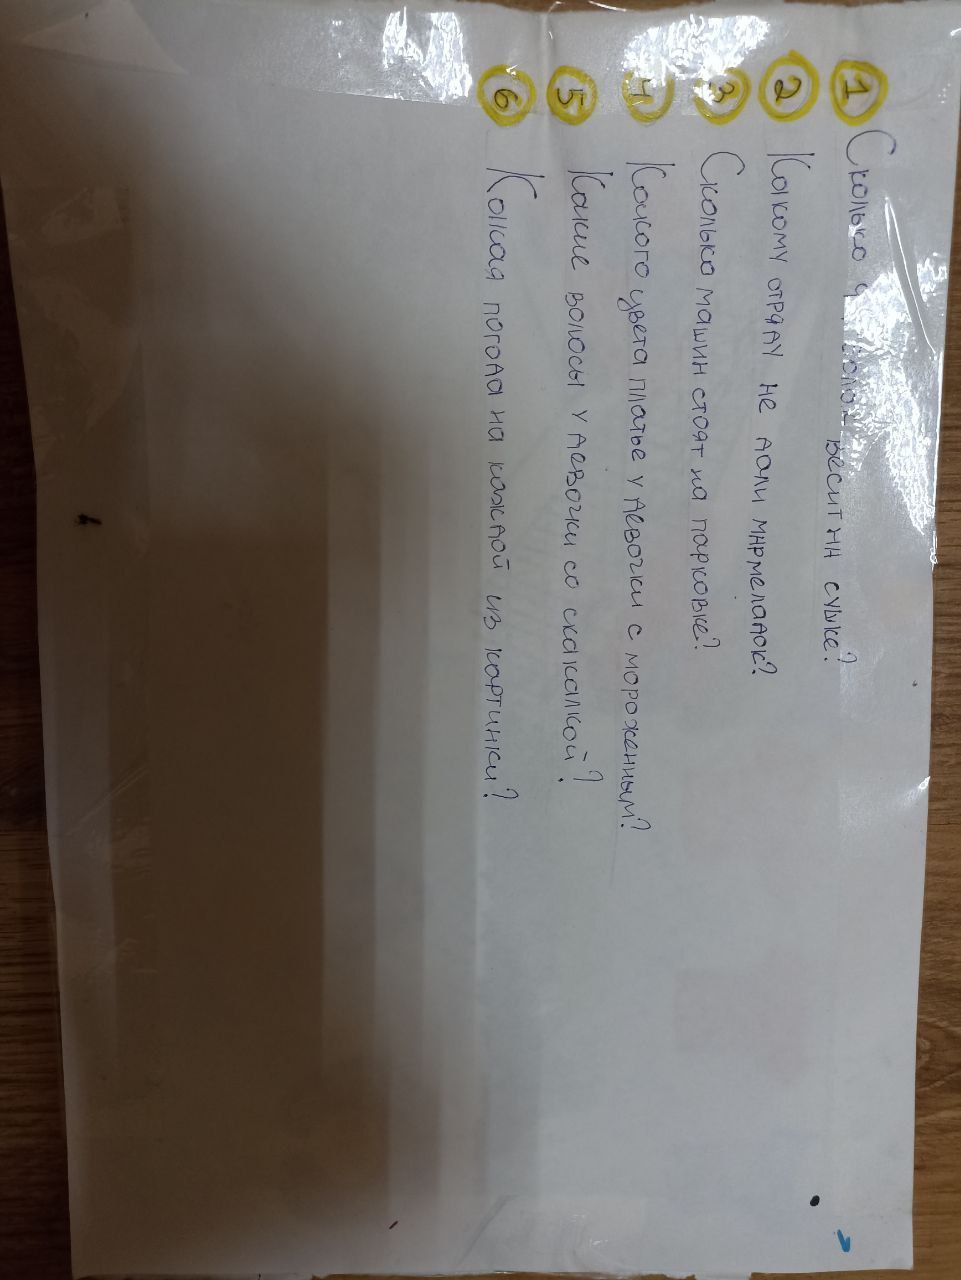 1 Сколько весит на сушке?
2 Какому отряду не дали мармеладок?
3 Сколько машин стоят на парковке?
4 Какого цвета платье у девочки с мороженным?
5 Какие волосы у девочки со скакалкой?
6 Какая погода на каждой из картинки?